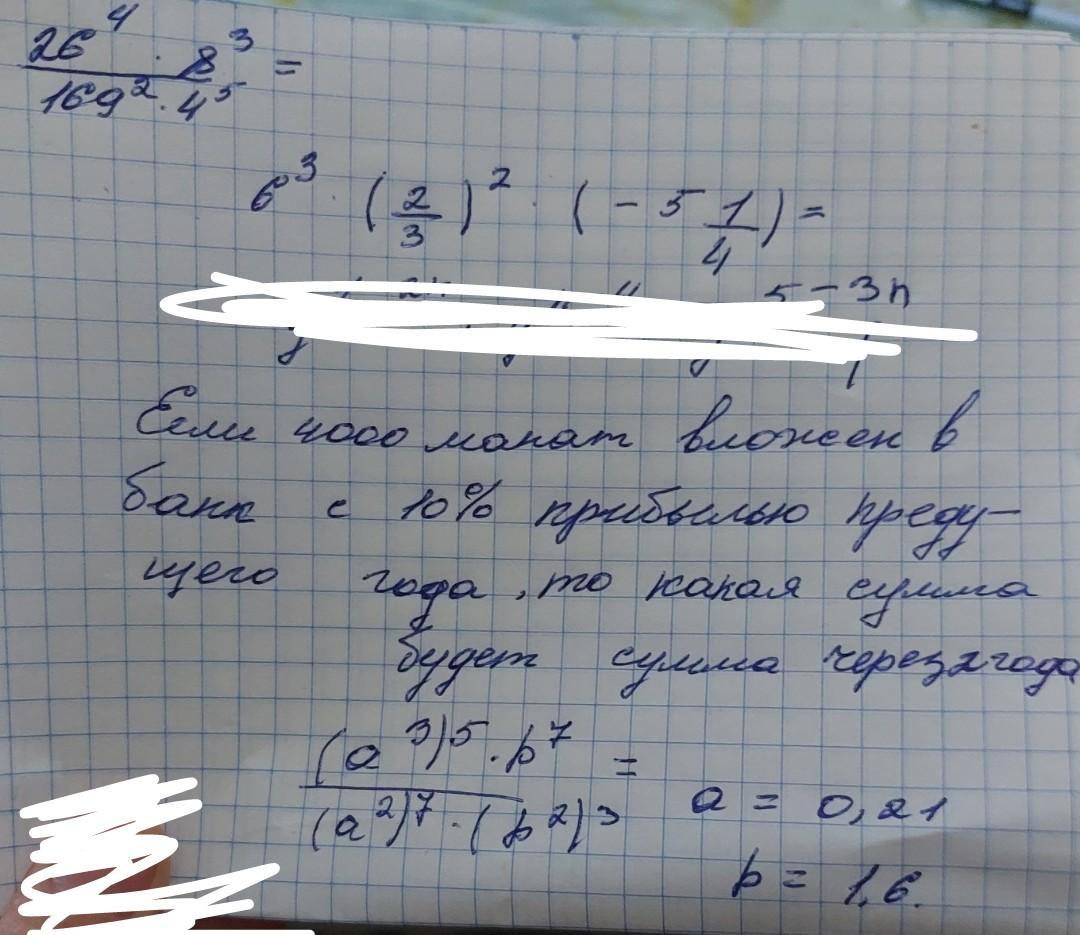 26⁴ · 8³ / 169² · 4⁵ =
6³ · (2/3)² · (- 5 1/4) =
5-3n
Если 4000 манат вложен в
банк с 10% прибылью преду-
щего года, то какая сумма
будет сумма через 2 года
(a³)⁵ · b⁷ / (a²)⁷ · (b²)³ = a = 0,21
b = 1,6.